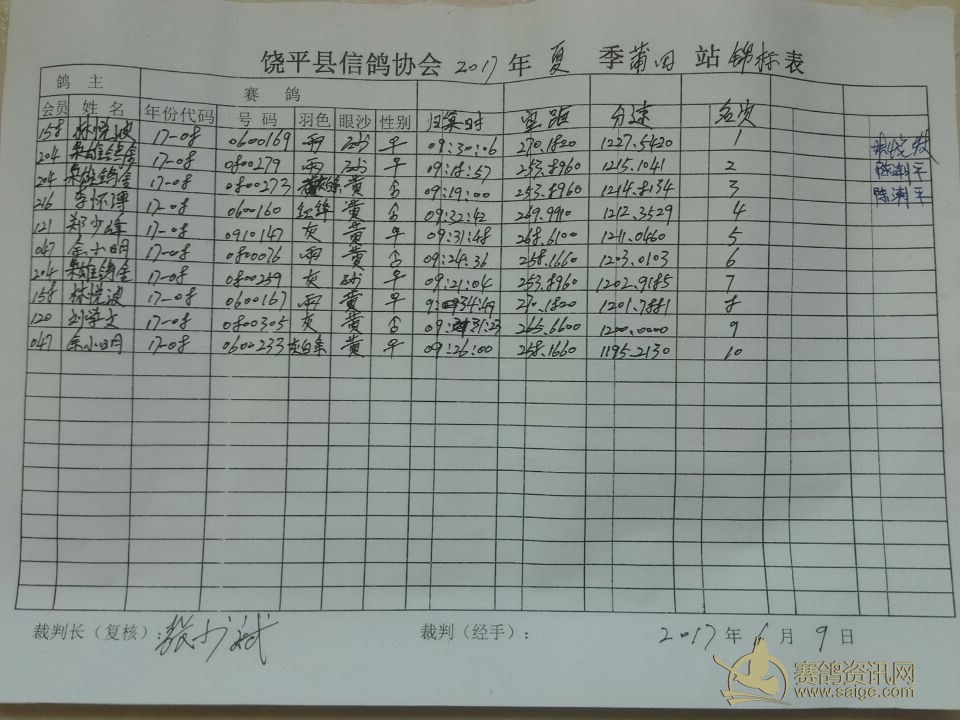 饶平县信鸽协会 2017 年 夏 季 莆田 站 锦标表
鸽主 赛鸽
会员 姓名 年份代码 号码 羽色 眼沙 性别 归巢日时 空距 分速 名次
158 林悦波 17-08 0600169 雨 砂 平 09:30:06 270.1820 1227.5420 1 林悦波
204 17-08 0800279 雨 砂 平 09:18:57 253.8960 1215.1041 2 陈潮平
204 17-08 0800273 黄 合 09:19:00 253.8960 1214.8134 3 陈潮平
216 李怀潭 17-08 0600160 红绛 黄 合 09:32:42 269.9910 1212.3529 4
121 郑少峰 17-08 0910147 灰 黄 平 09:31:48 268.6100 1211.0460 5
047 余小明 17-08 0800076 雨 黄 合 09:24:36 258.1660 1203.0103 6
204 17-08 0800259 灰 砂 平 09:21:04 253.8960 1202.9185 7
158 林悦波 17-08 0600167 雨 黄 平 9:34:49 270.1820 1201.7881 8
120 刘学文 17-08 0800305 灰 黄 合 09:31:23 265.6600 1200.0000 9
047 余小明 17-08 0600233 灰白条 黄 平 09:26:00 258.1660 1195.2130 10
裁判长（复核）： 张少斌 裁判（经手）： 2017 年 6 月 9 日
赛鸽资讯网
www.saige.com